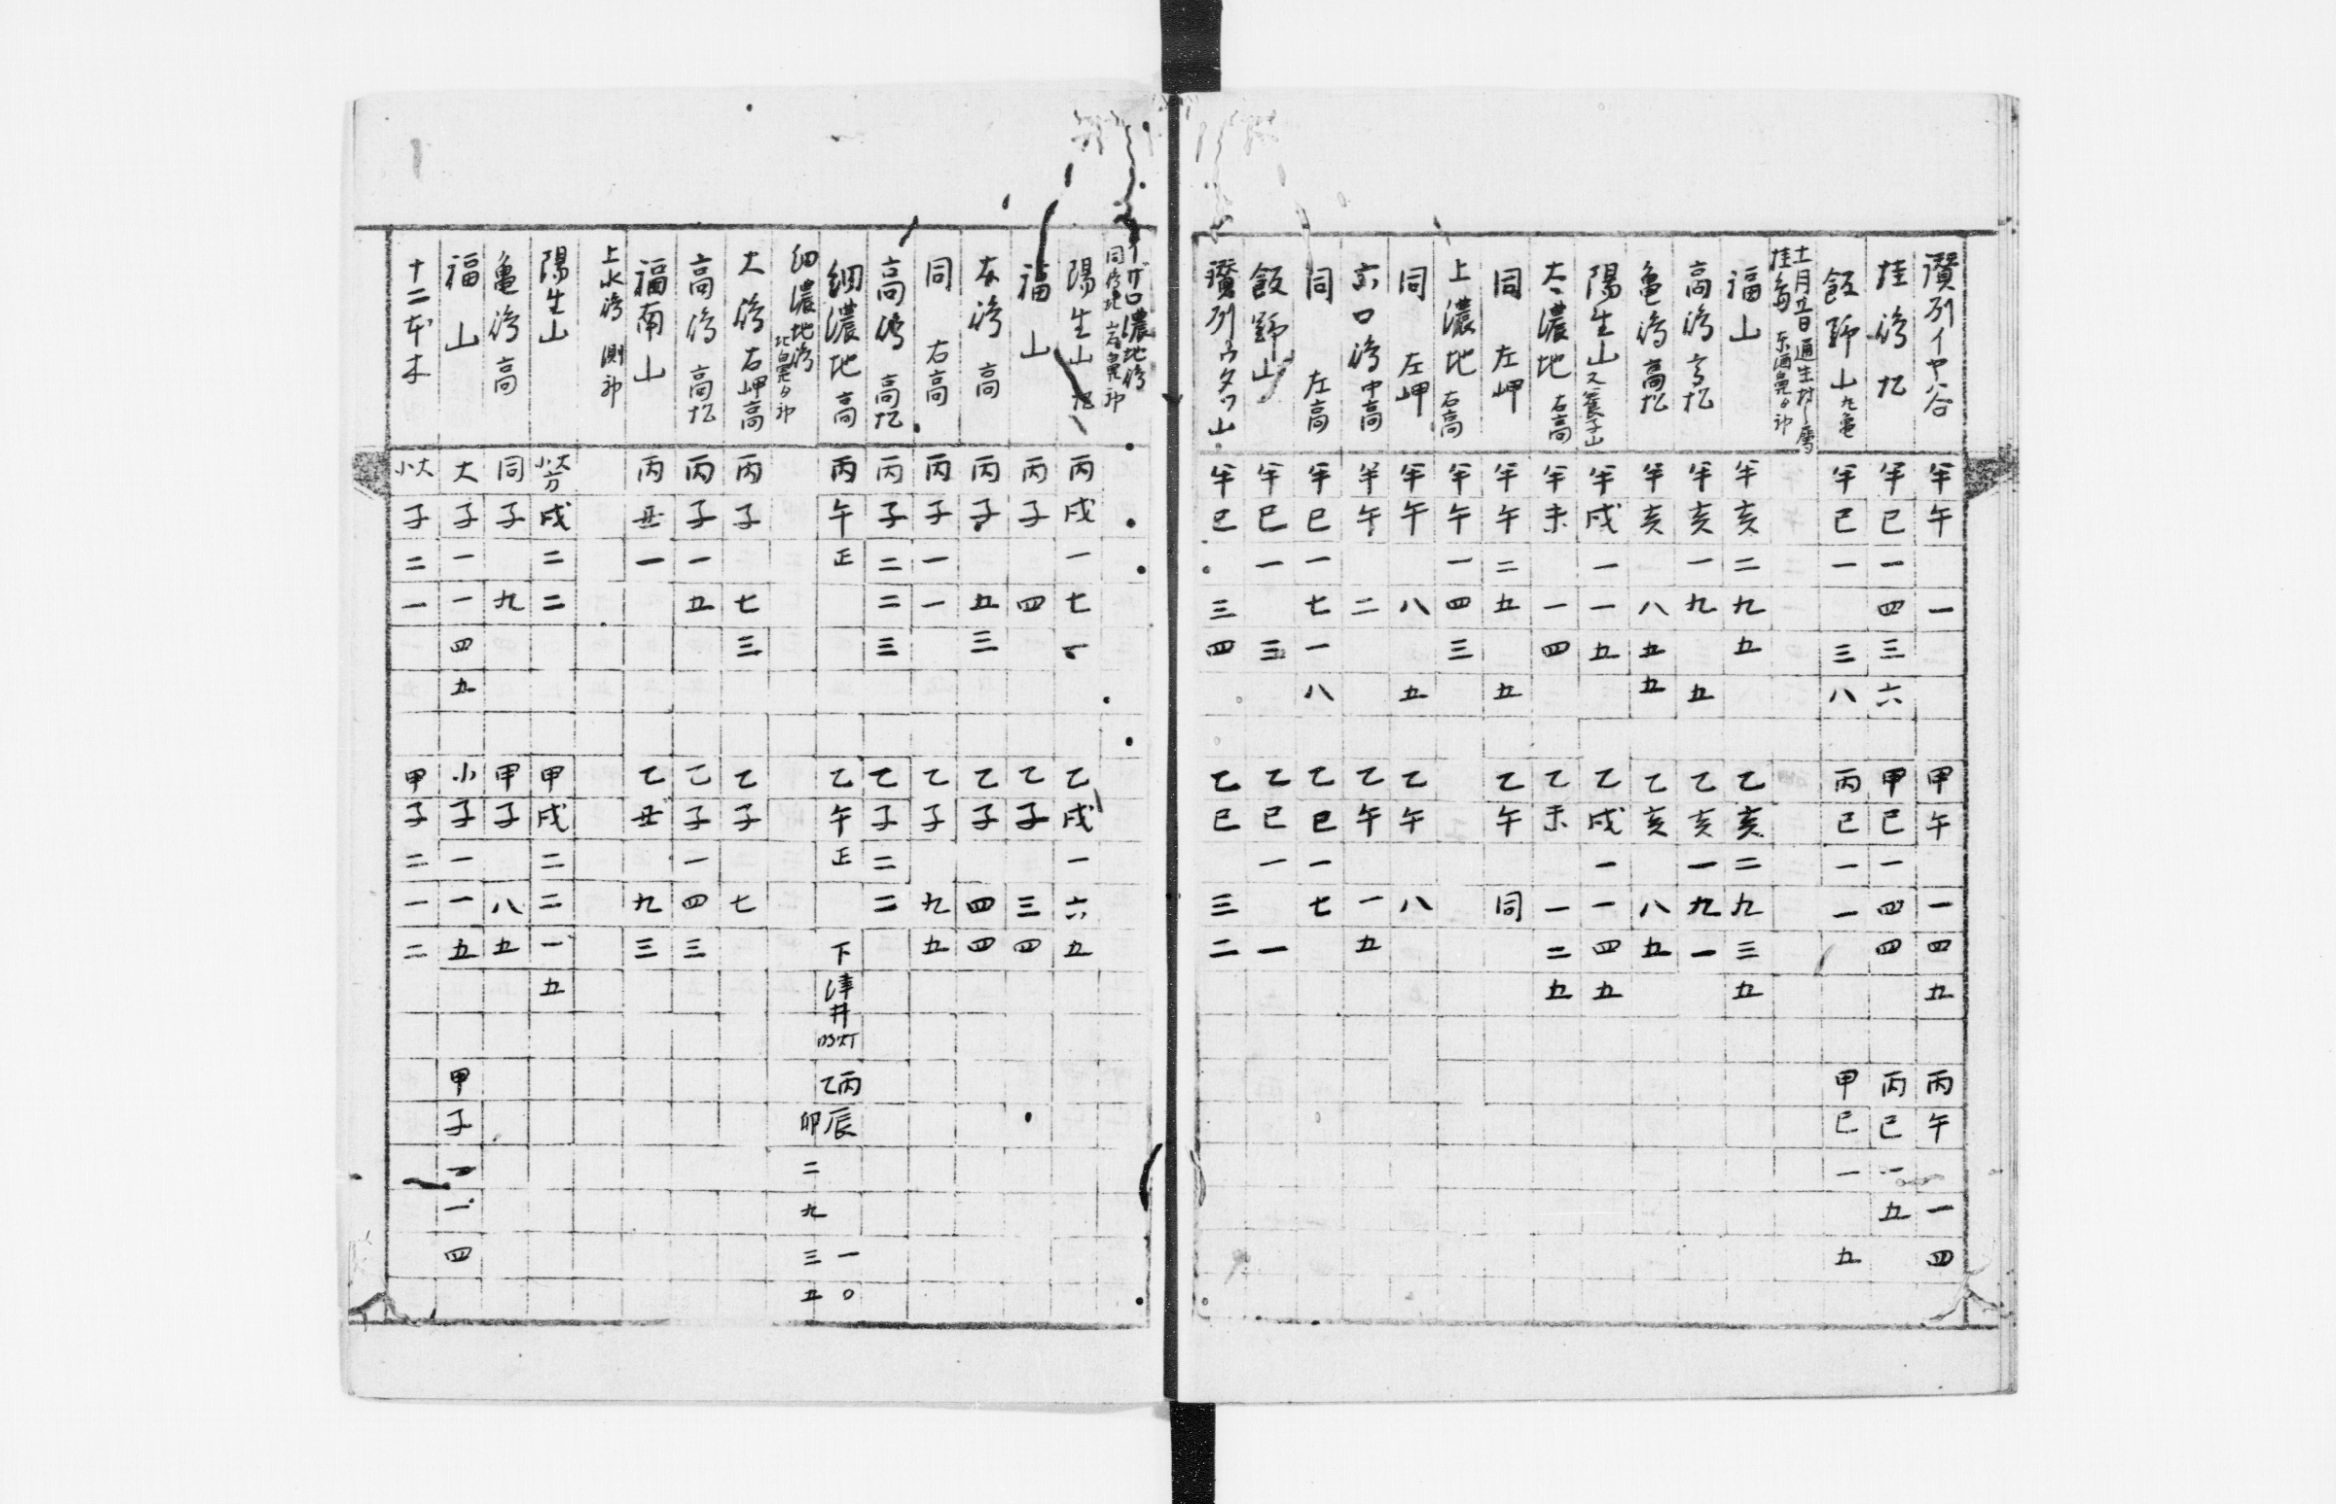 讃州イヤ谷 午午 一 甲午 一四五 丙午 一一四
桂島 午巳一四三六 甲巳一四四 丙巳一五
飯野山 丸亀 午巳一 三八 丙巳一一 甲巳一 五
福山 午亥二九五 乙亥二九三五
高島 午亥一九 五 乙亥一九一
亀島 高 午亥 八五五 乙亥 八五
陽生山 又養子山 午戌一一五 乙戌一一四五
大濃地 右高 午未 一四 乙未 一二五
同 左岬 午午二五 五 乙午 同
上濃地 右高 午午一四三
同 左岬 午午 八 五 乙午 八
六口島 中高 午午 二 乙午 一五
同 左高 午巳一七一八 乙巳一七
飯野山 午巳一 三 乙巳一 一
讃州 山 午巳 三四 乙巳 三二
陽生山 丙戌一七一 乙戌一六五
福山 丙子 四 乙子 三四
本島 高 丙子 五三 乙子 四四
同 右高 丙子一一 乙子 九五
高島 高 丙子二二三 乙子二二
細濃地 高 丙午正 乙午正 下津井 丙辰 一〇 乙卯二九三五
細濃地島
大島 右岬高 丙子 七三 乙子 七
高島 高 丙子一五 乙子一四三
福南山 丙丑一 乙丑 九三
上水島 測
陽生山 大小方 戌二二 甲戌二二一五
亀島 高 同子 九 甲子 八五
福山 大子一一四五 小子一一五 甲子一一四
十二本木 大小 子二一 甲子二一二